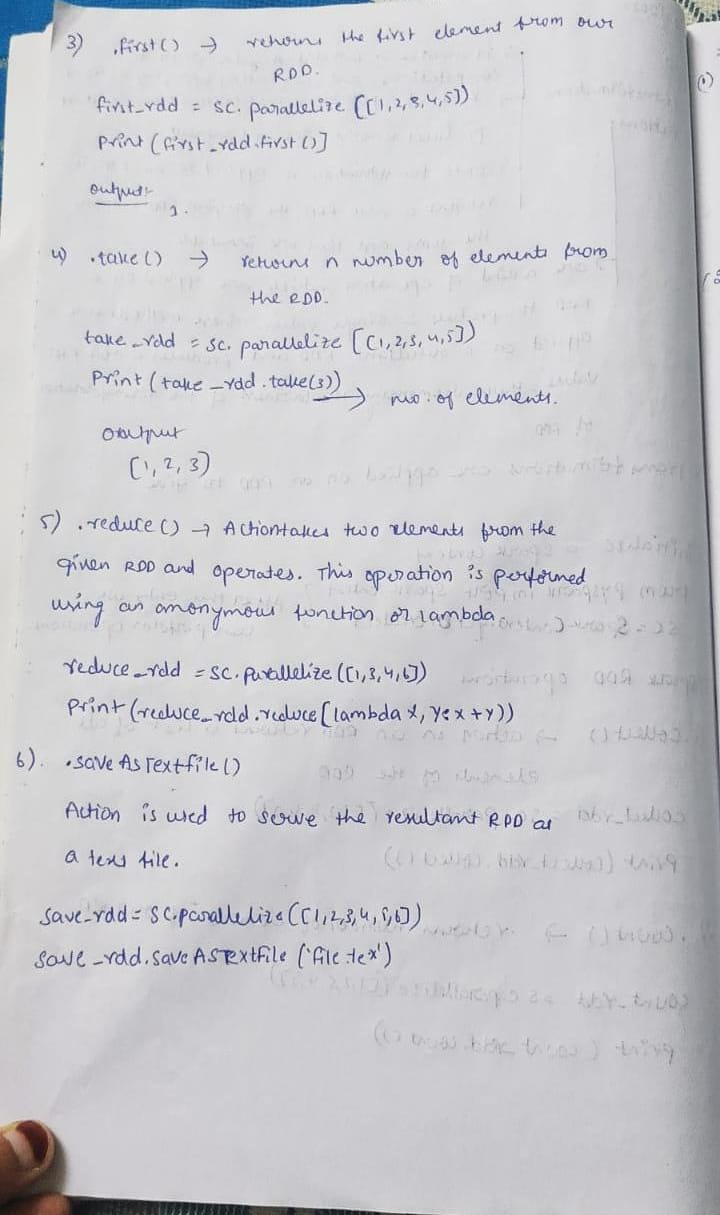 3) .first() → returns the first element from our
RDD.
first_rdd = sc. parallelize ([1,2,3,4,5])
Print (first_rdd.first()]
output:-
1.
4) .take() → returns n number of elements from
the RDD.
take_rdd = sc. parallelize [[1,2,3,4,5])
Print (take_rdd.take(3)) → no. of elements.
output
[1,2,3)
5) .reduce() → Action takes two elements from the
given RDD and operates. This operation is performed
using an anonymous function or lambda.
reduce_rdd = sc.parallelize([1,3,4,6])
Print (reduce_rdd.reduce[lambda x, y: x + y))
6). .save As Textfile()
Action is used to serve the resultant RDD as
a text file.
save_rdd = sc.parallelize([1,2,3,4,5,6])
save_rdd.save ASTextfile ('file.tex')